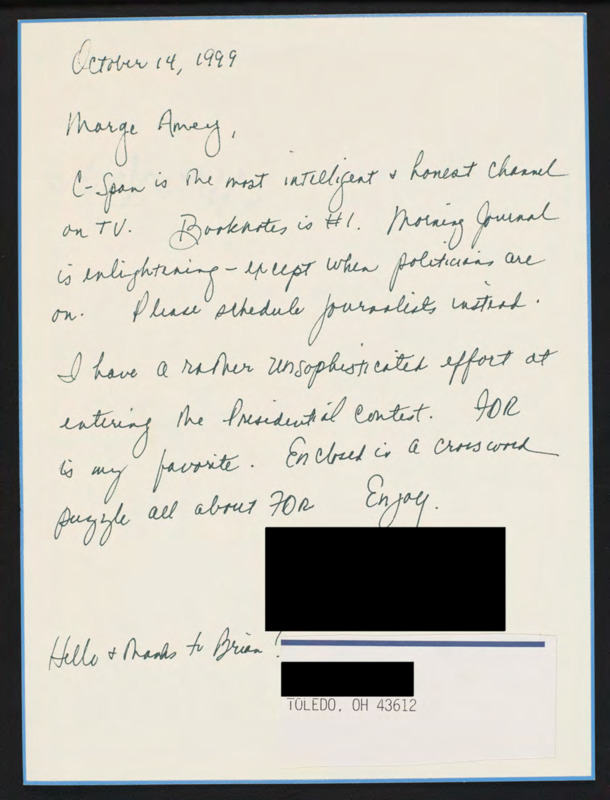 October 14, 1999
Marge Amey,
C-Span is the most intelligent & honest channel
on TV. Booknotes is #1. Morning Journal
is enlightening - except when politicians are
on. Please schedule journalists instead.
I have a rather unsophisticated effort at
entering the Presidential contest. FDR
is my favorite. Enclosed is a crossword
puzzle all about FDR Enjoy.
Hello & thanks to Brian!
TOLEDO, OH 43612